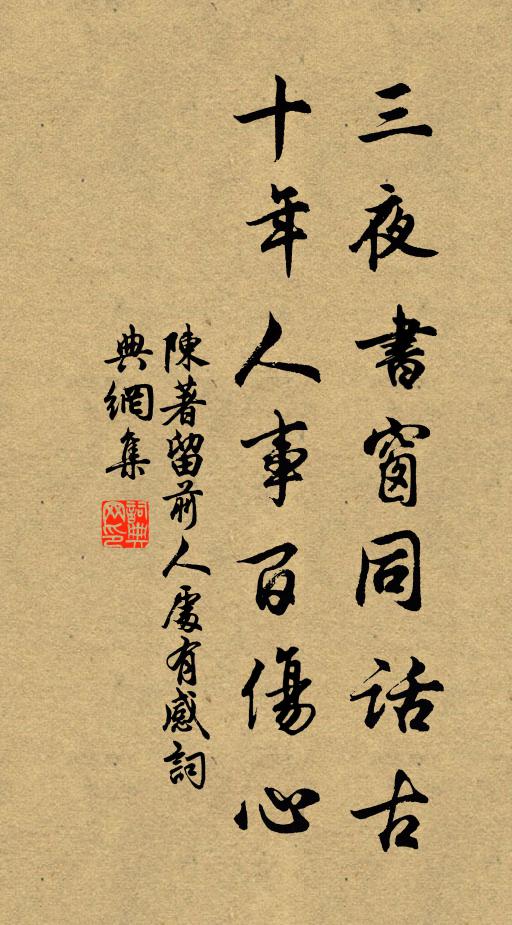 三夜書窗同話古
十年人事百傷心
陳著留前人處有感詞
典網集
詞典網印